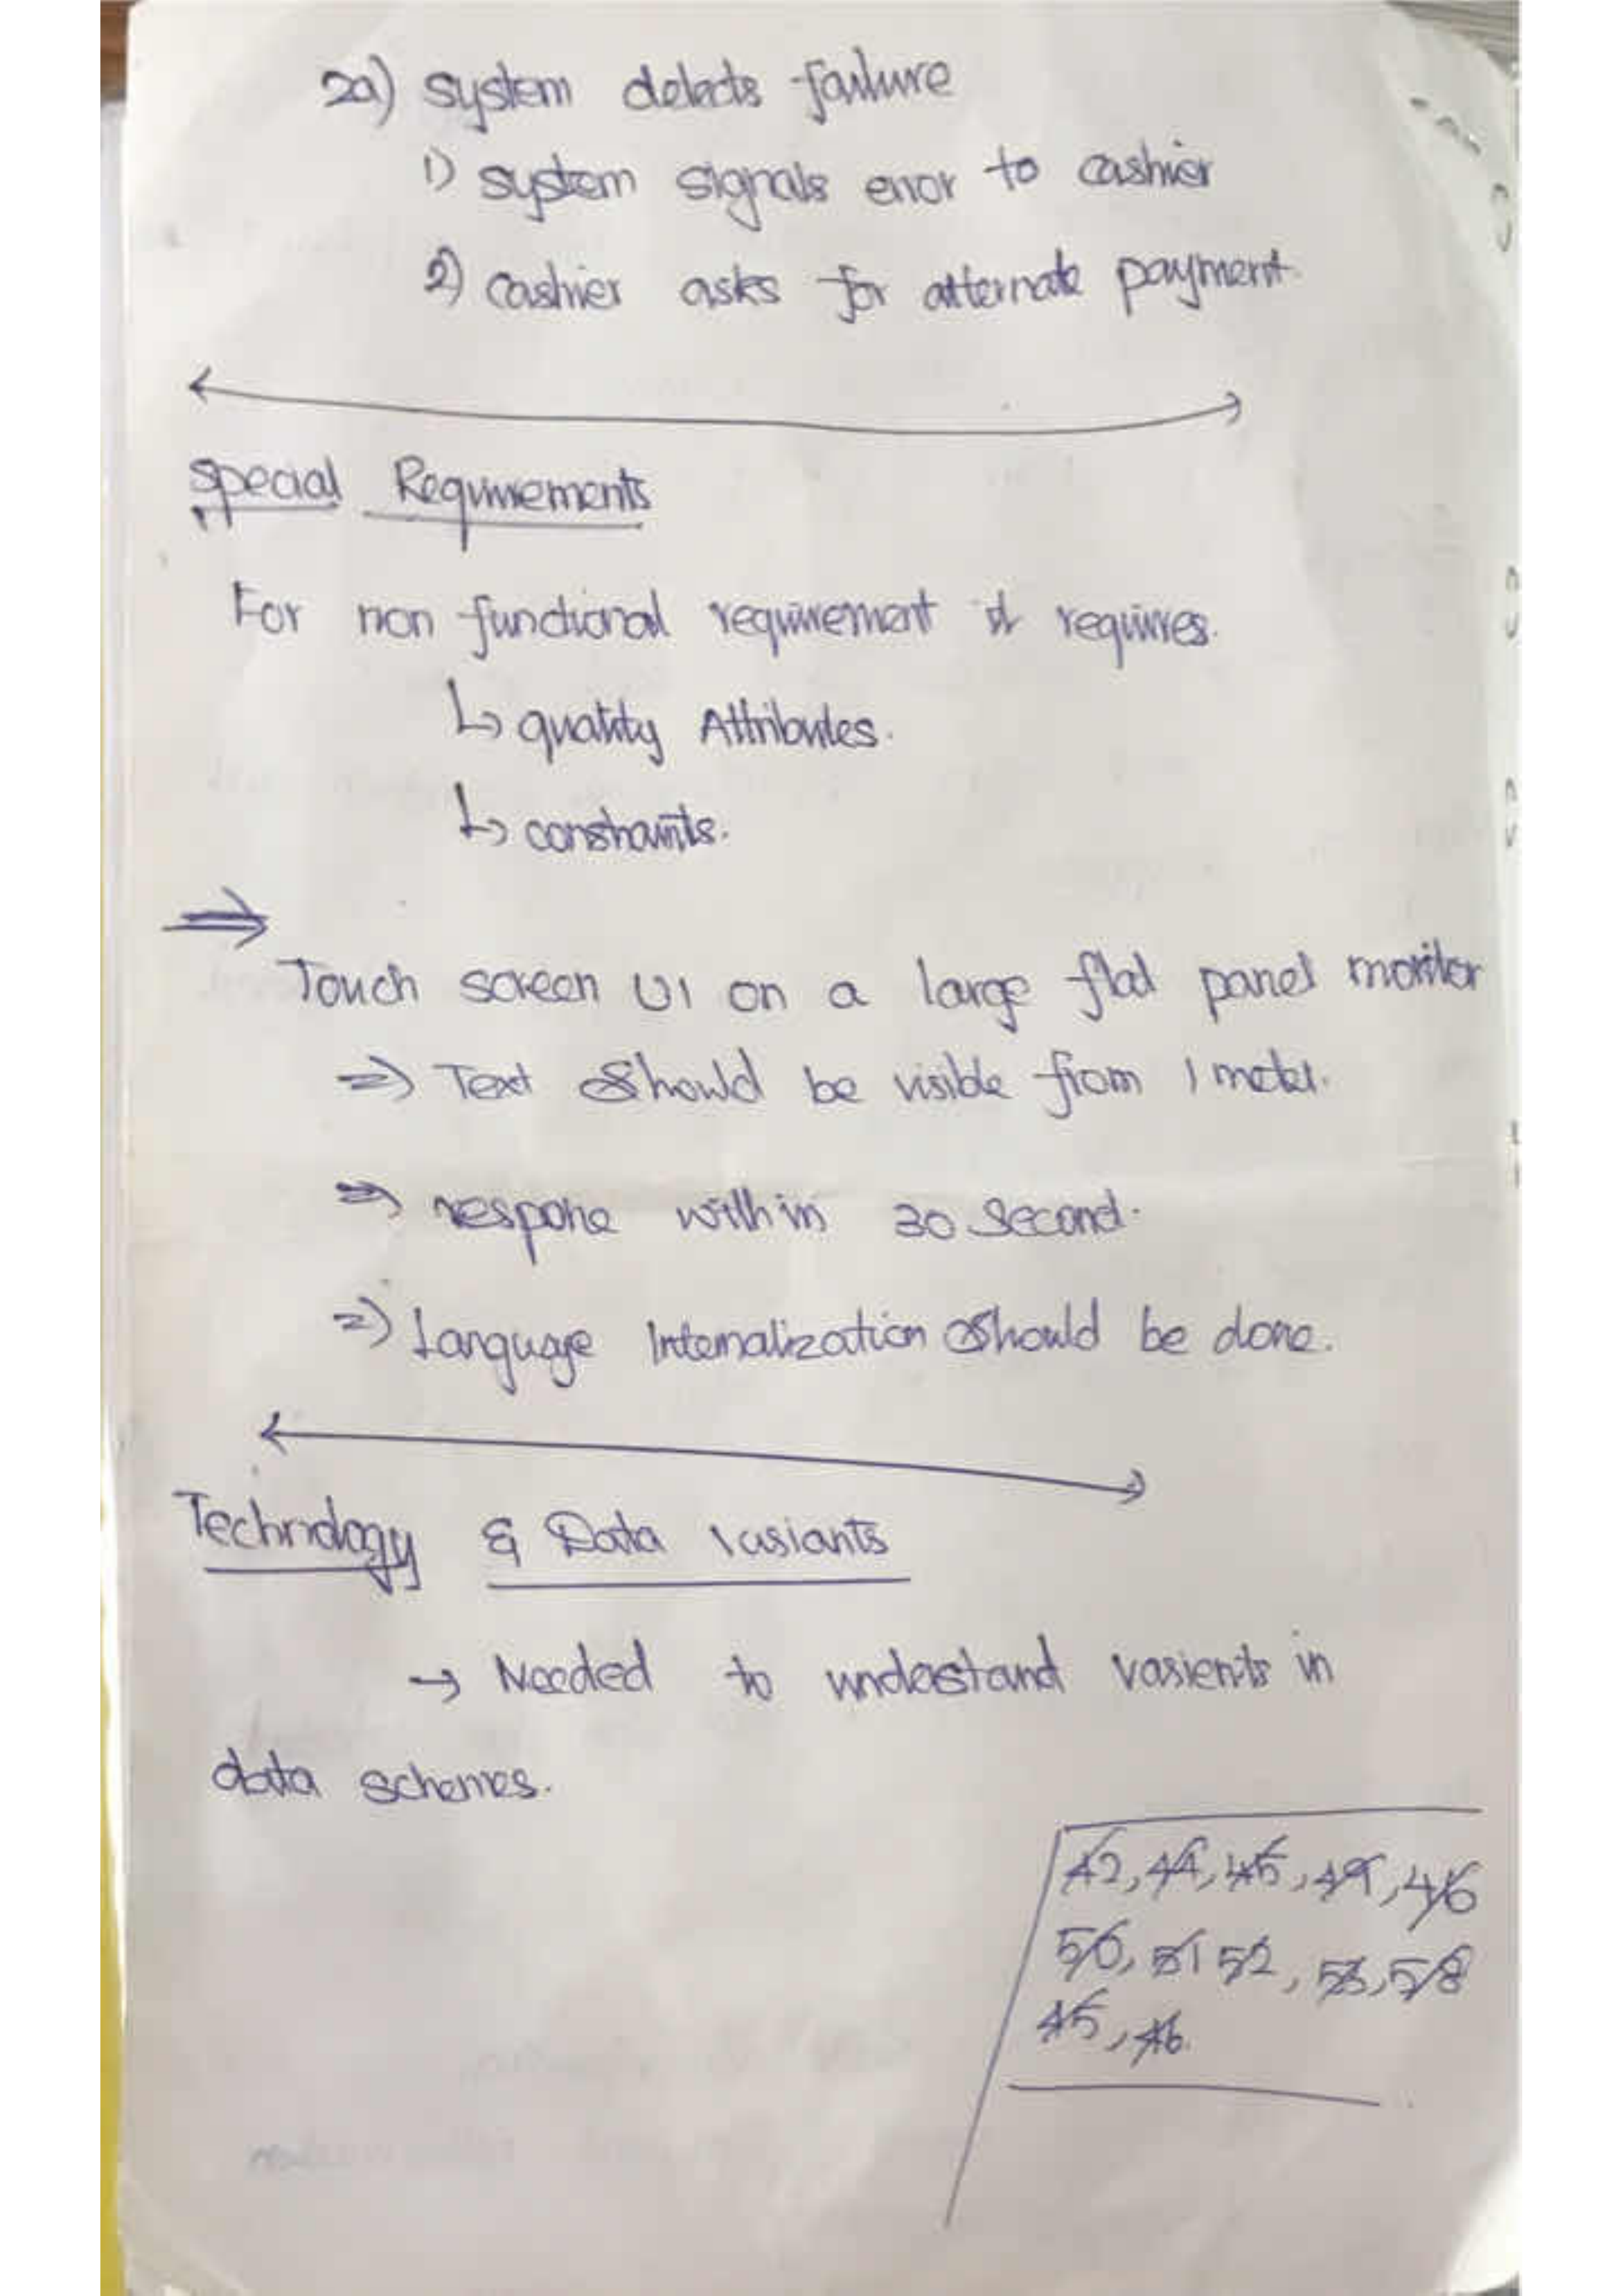 2a) system detects failure
1) system signals error to cashier
2) cashier asks for alternate payment.
Special Requirements
For non functional requirement it requires.
↳ quality Attributes.
↳ constraints.
⇒
Touch screen UI on a large flat panel monitor
⇒ Text should be visible from 1 meter.
⇒ respone within 30 second.
⇒ Language Internalization should be done.
Technology & Data Variants
→ Needed to understand varients in
data schemes.
42, 44, 45, 49, 46
50, 51 52, 53, 58
45, 46.